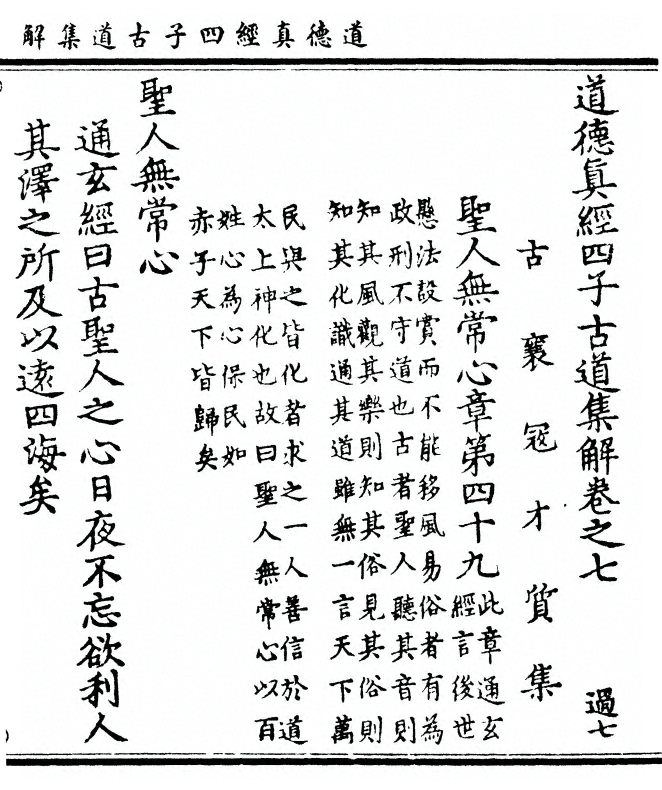 道德真經四子古道集解
道德眞經四子古道集解卷之七 過七
古襄寇才質集
聖人無常心章第四十九
此章通玄
經言後世
懸法設賞而不能移風易俗者有為
政刑不守道也古者聖人聽其音則
知其風觀其樂則知其俗見其俗則
知其化識通其道雖無一言天下萬
民與之皆化者求之一人善信於道
太上神化也故曰聖人無常心以百
姓心為心保民如
赤子天下皆歸矣
聖人無常心
通玄經曰古聖人之心日夜不忘欲利人
其澤之所及以遠四海矣